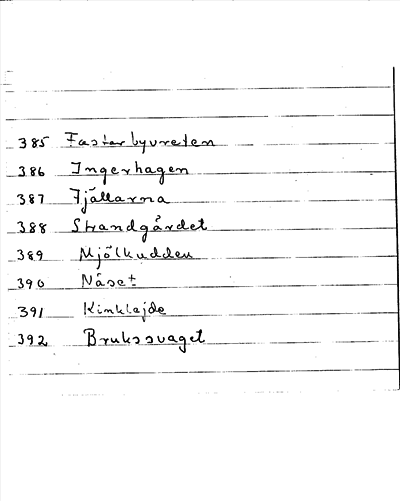 385 Fasterbyvreten
386 Ingerhagen
387 Fjällarna
388 Strandgärdet
389 Mjölkudden
390 Näset
391 Kinklajde
392 Brukssvaget